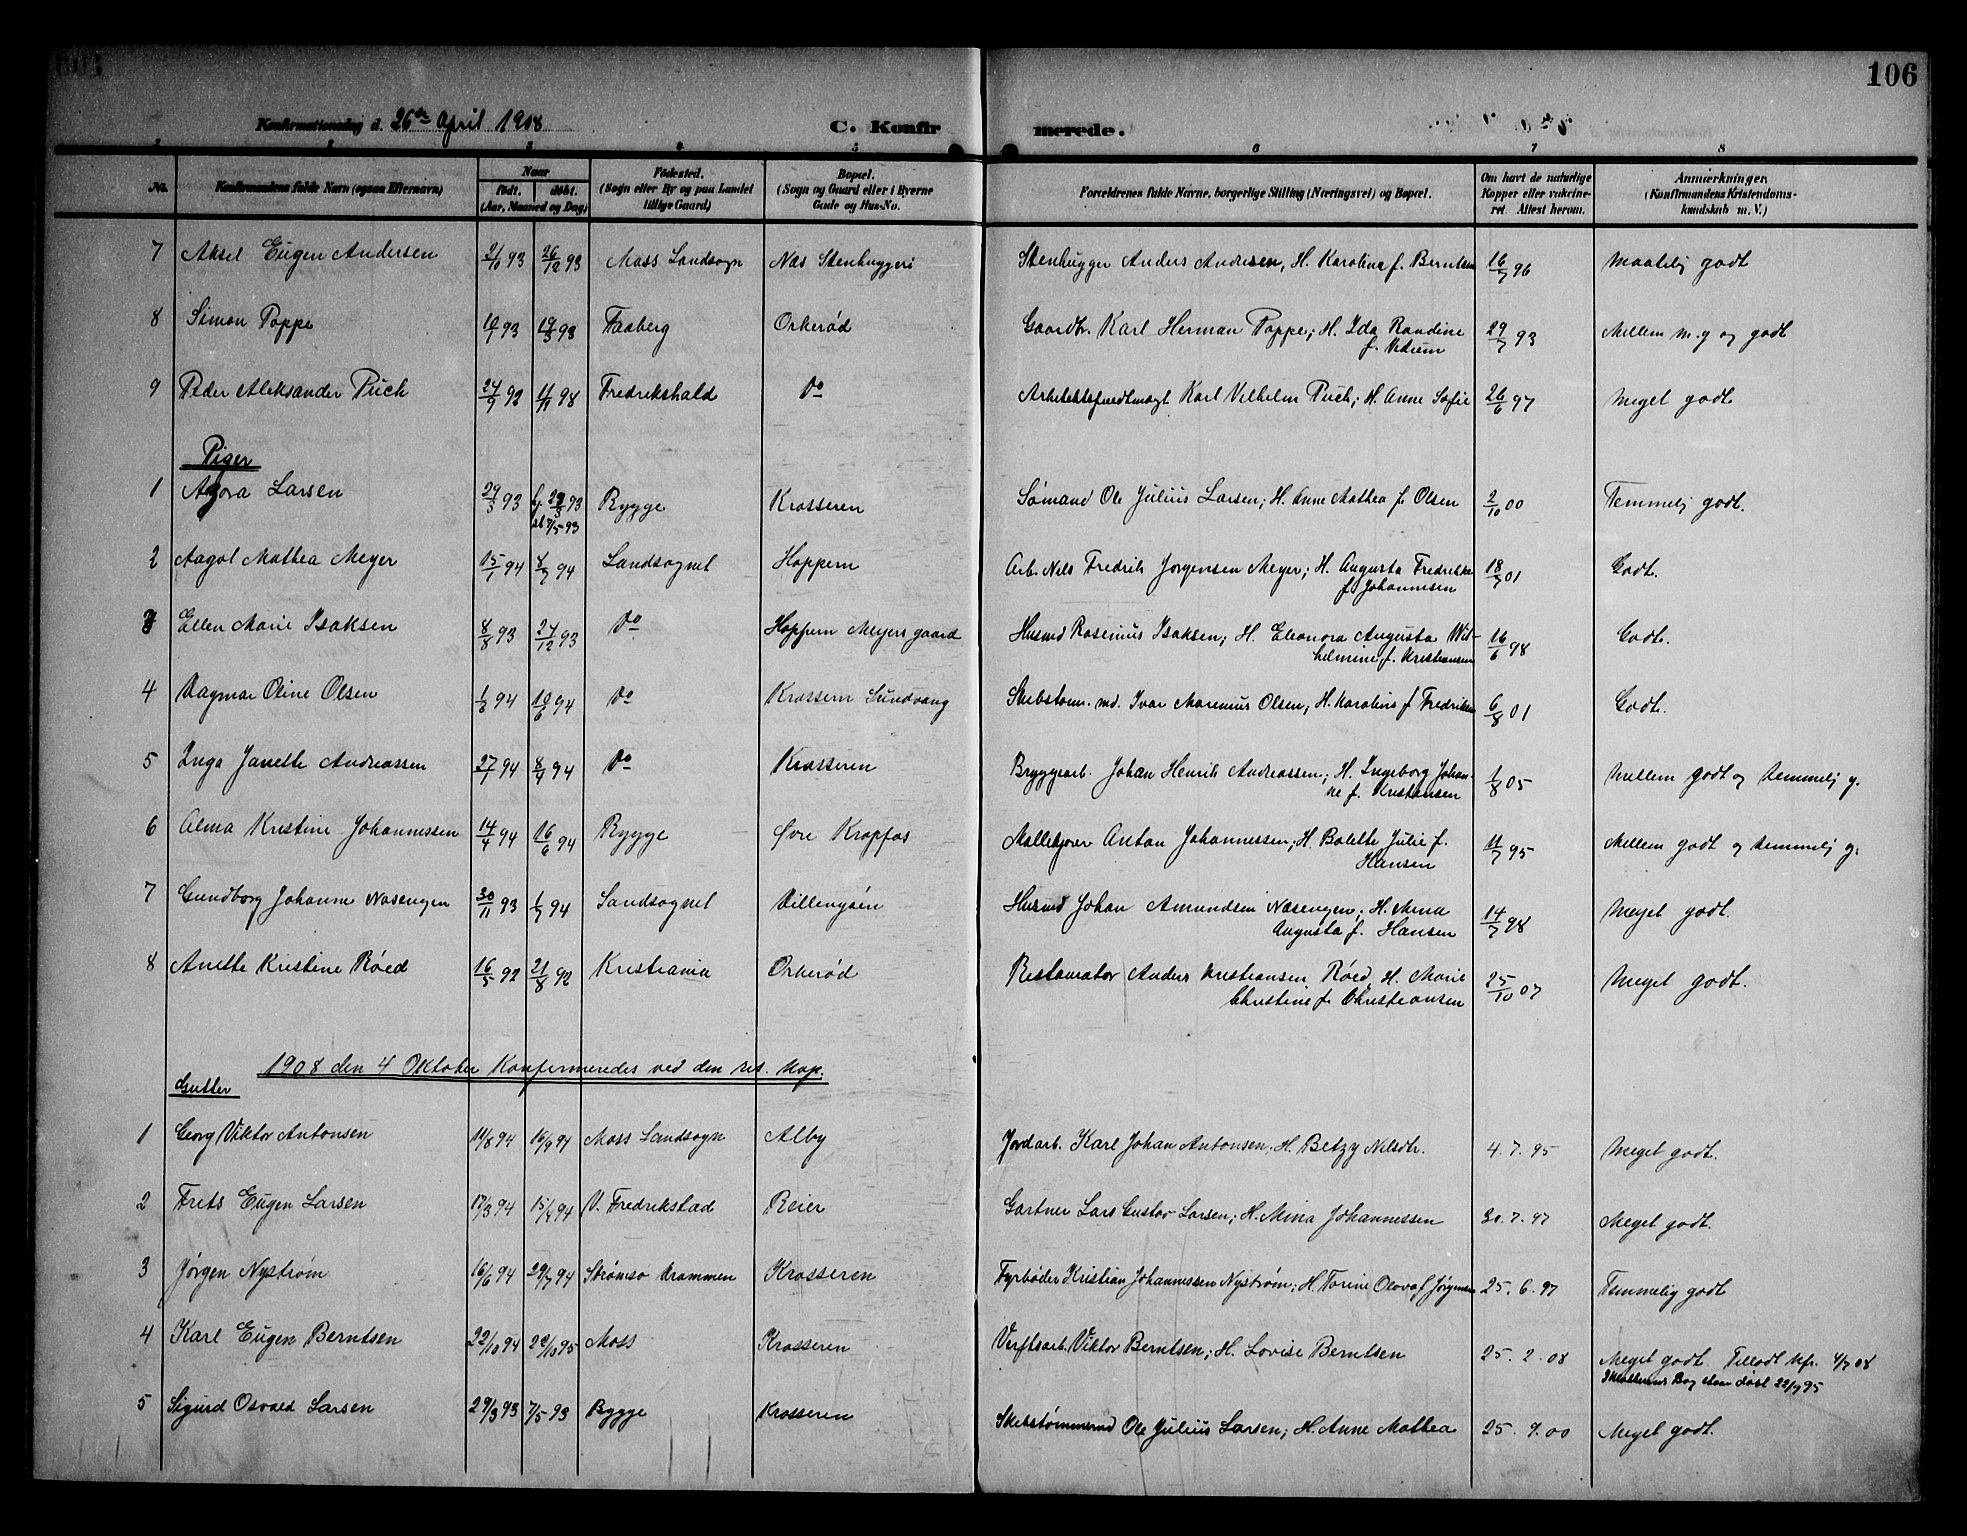 106
Konfirmationsdag d. 26de April 1908 C. Konfirmerede.
1 2 3 4 5 6 7 8
No. Konfirmandens fulde Navn (ogsaa Efternavn) Naar født. døbt. (Aar, Maaned og Dag) Fødested. (Sogn eller By og paa Landet tillige Gaard) Bopæl. (Sogn og Gaard eller i Byerne Gade og Hus-No. Forældrenes fulde Navne, borgerlige Stilling (Næringsvei) og Bopæl. Om havt de naturlige Kopper eller vakcineret Attest herom. Anmærkninger. (Konfirmandens Kristendomskundskab m. V.)
7 Aksel Eugen Andersen 2/10 93 26/12 93 Moss Landsogn Næs Stenhuggeri Stenhugger Anders Andresen, H. Karoline f. Berntsen 16/7 96 Maatelig godt
8 Simon Poppe 10/1 93 19/3 93 Faaberg Orkerød Gaardbr. Karl Herman Poppe; H. Ida Randine 29/7 93 Mellem m. g og godt
f. Vedum
9 Peder Aleksander Puch 24/9 92 11/11 98 Fredrikshald Do Karl Vilhelm Puch; H. Anne Sofie 26/6 97 Meget godt.
Piger
1 Agora Larsen 29/3 93 29/3 93 Rygge Krosseren Sømand Ole Julius Larsen; H. Anne Mathea f. Olsen 2/10 00 Temmelig godt.
7/5 93
2 Aagot Mathea Meyer 15/1 94 8/7 94 Landsognet Hoppern Arb. Nils Fredrik Jørgensen Meyer; H. Augusta Fredrikke 18/7 01 Godt.
f. Johannesen
3 Ellen Marie Isaksen 8/8 93 24/12 93 Do Hoppern Meyers gaard Husmd Rasmus Isaksen; H. Eleonora Augusta Wil- 16/6 98 Godt.
helmine f. Kristiansen
4 Dagmar Oline Olsen 1/3 94 10/6 94 Do Krossern Sundvang Skibstøm. md. Ivar Marenius Olsen; H. Karoline f Fredriksen 6/8 01 Godt.
5 Inga Janette Andreassen 27/1 94 8/4 94 Do Krosseren Bryggearb. Johan Henrik Andreassen; H. Ingeborg Johan- 1/8 05 Mellem godt og temmelig g.
ne f. Kristiansen
6 Alma Kristine Johannessen 14/4 94 16/6 94 Rygge Øvre Kropfos Møllekjører Anton Johannessen; H. Bolette Julie f. 11/7 95 Mellem godt og temmelig g.
Hansen
7 Gundborg Johanne Nøsengen 30/11 93 1/7 94 Landsognet Dillengøen Husmd Johan Amundsen Nøsengen; H. Mina 14/7 98 Meget godt.
Augusta f. Hansen
8 Anette Kristine Røed 16/5 92 21/8 92 Kristiania Orkerød Restauratør Anders Kristiansen Røed, H. Marie 25/10 07 Meget godt.
Christine f. Christiansen
1908 den 4 Oktober Konfirmeredes ved den res. Kap.
Gutter
1 Georg Viktor Antonsen 11/8 94 16/9 94 Moss Landsogn Alby Jordarb. Karl Johan Antonsen, H. Betzy Nilsdtr. 4. 7. 95 Meget godt.
2 Frits Eugen Larsen 17/3 94 15/4 94 V. Fredrikstad Reier Gartner Lars Gustav Larsen; H. Mina Johannessen 30. 7. 97 Meget godt.
3 Jørgen Nystrøm 16/6 94 29/7 94 Strømsø Drammen Krosseren Fyrbøder Kristian Johannessen Nystrøm; H. Torine Olava f Jørgensen 25. 6. 97 Temmelig godt
4 Karl Eugen Berntsen 22/10 94 22/10 95 Moss Krosseren Verftsarb. Viktor Berntsen; H. Lovise Berntsen 25. 2. 08 Meget godt. Tilladt 4/7 08
døbt 22/9 95
5 Sigurd Osvald Larsen 29/3 93 7/5 93 Rygge Krosseren Skibstømmermd Ole Julius Larsen; H. Anne Mathea 25. 9. 00 Meget godt.